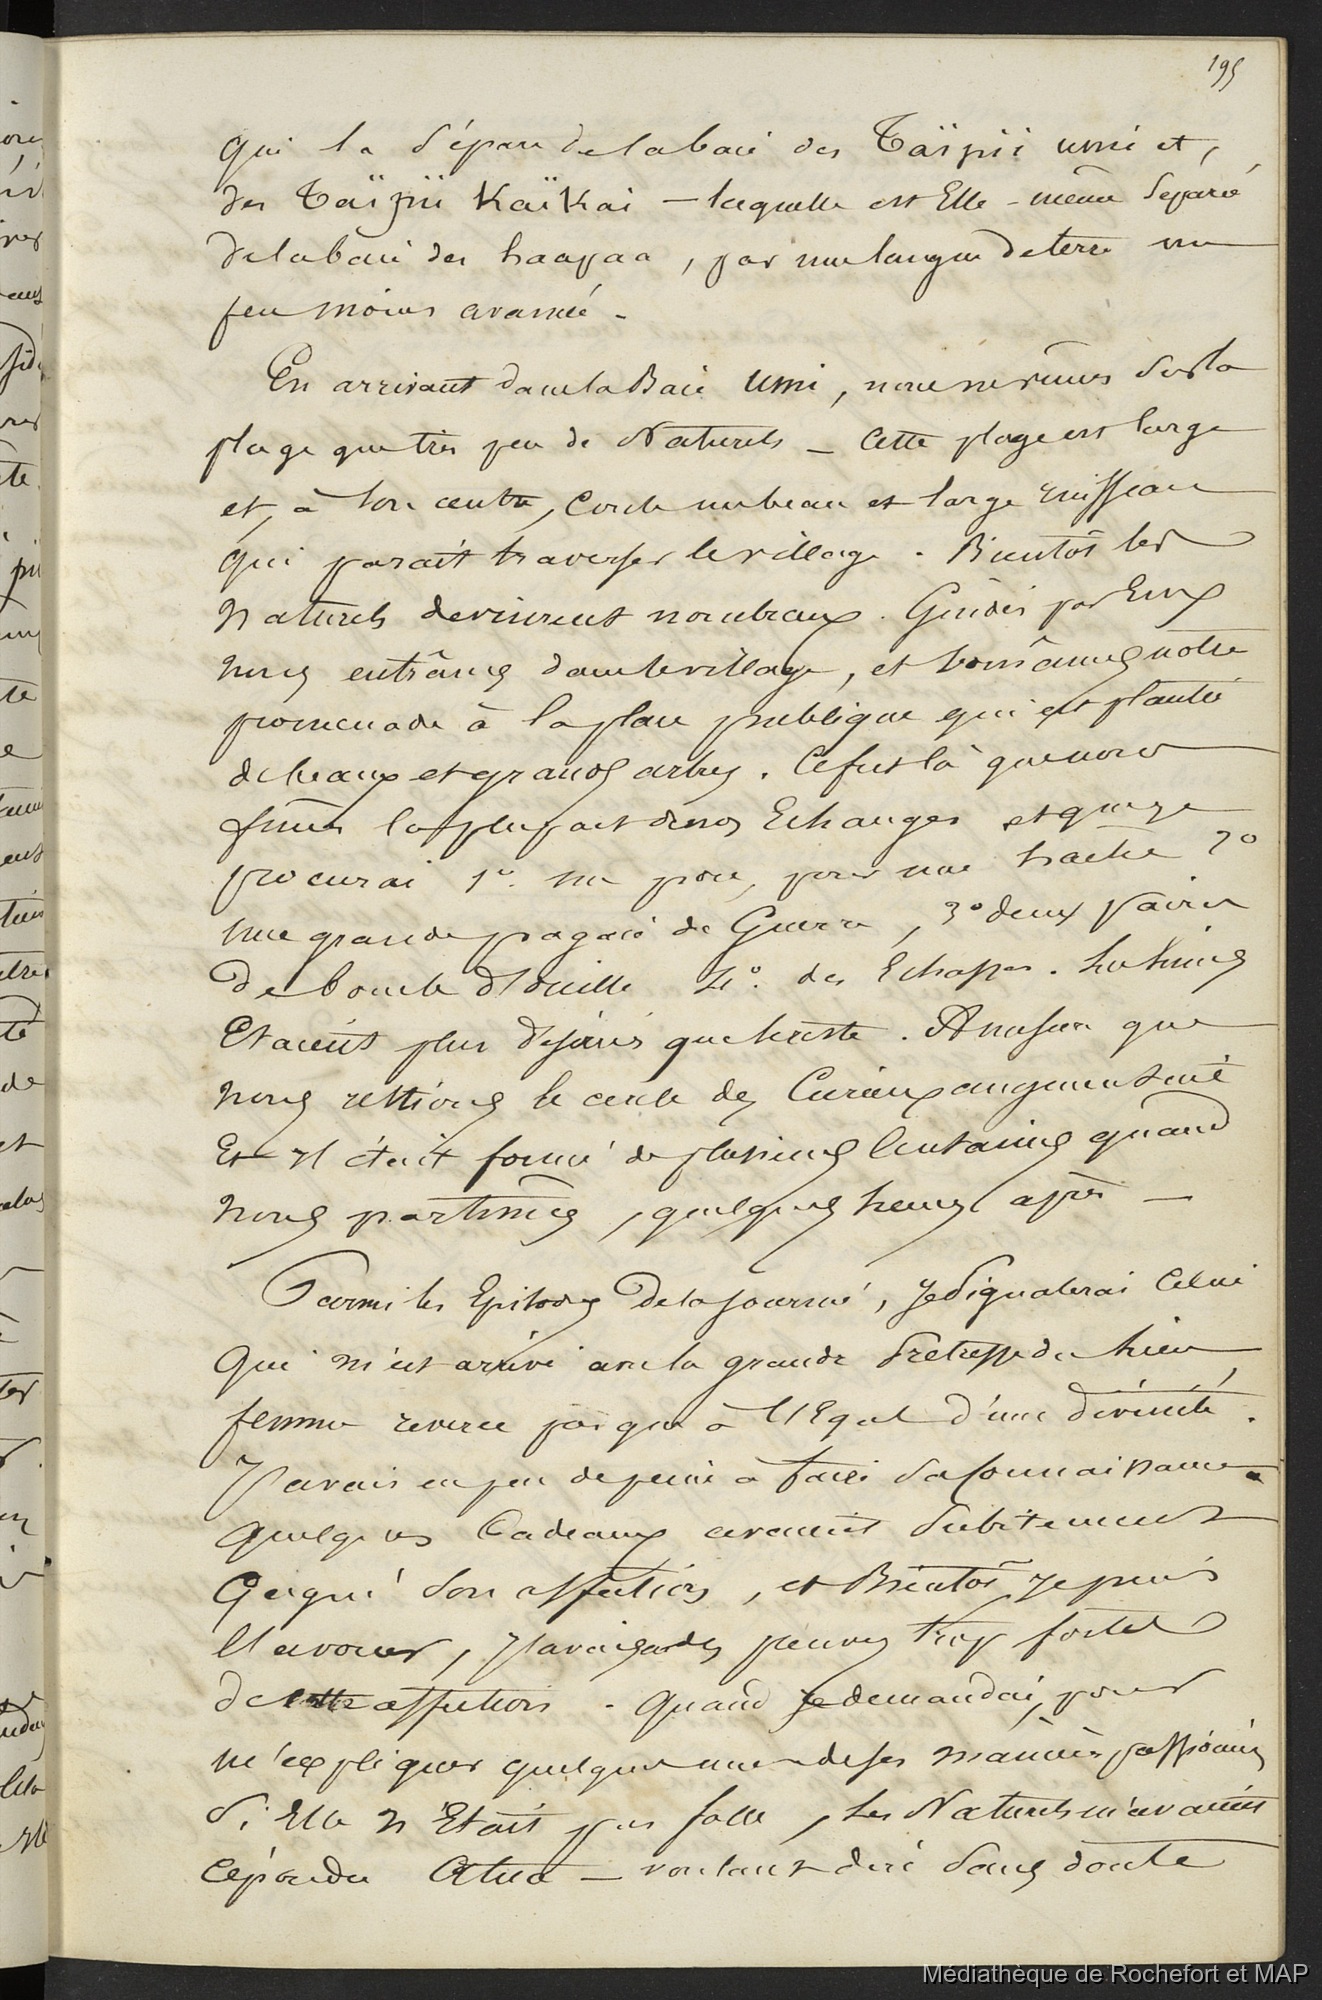 195
qui la sépare de la baie des Taïpii umi et,
des Taïpii Kaïkai – laquelle est Elle-même séparé
de la baie des haapaa, par une langue de terre un
peu moins avancée –
En arrivant dans la Baie Umi, nous ne vîmes sur la
plage que très peu de Naturels – Cette plage est large
et, à son centre, Coule un beau et large ruisseau
qui parait traverser le village. Bientôt les
Naturels devinrent nombreux. Guidés par Eux
nous entrâmes dans le village, et bornâmes notre
promenade à la place publique qui est planté
de beaux et grands arbres. Ce fut là que nous
fîmes la plupart de nos Echanges et que je
procurai 1º. un porc, pour une hache 2º
une grande pagaie de Guerre, 3º deux paires
de boucle d'Oreille 4º. des Echasses.
Etaient plus desirés que le reste. A mesure que
nous restions le cercle des Curieux augmentait
Et Il était formé de plusieurs Centaines quand
nous partimes, quelques heures après –
Parmi les Episodes de la journée, Je Signalerai Celui
Qui m'est arrivé avec la grande Prêtresse du lieu,
femme reverée presque à l'Egal d'une divinité.
J'avais eu peu de peine à faire sa Connaissance.
quelques Cadeaux avaient Subitement
Gagné son affection, et Bientôt, Je puis
l'avouer, J'avais des preuves trop fortes
de cette affection. Quand je demandai, pour
m'expliquer quelques unes de ses manières passionnées
Si Elle n'Etait pas folle, les Naturels m'avaient
répondu Atua – voulant dire sans doute
Médiathèque de Rochefort et MAP